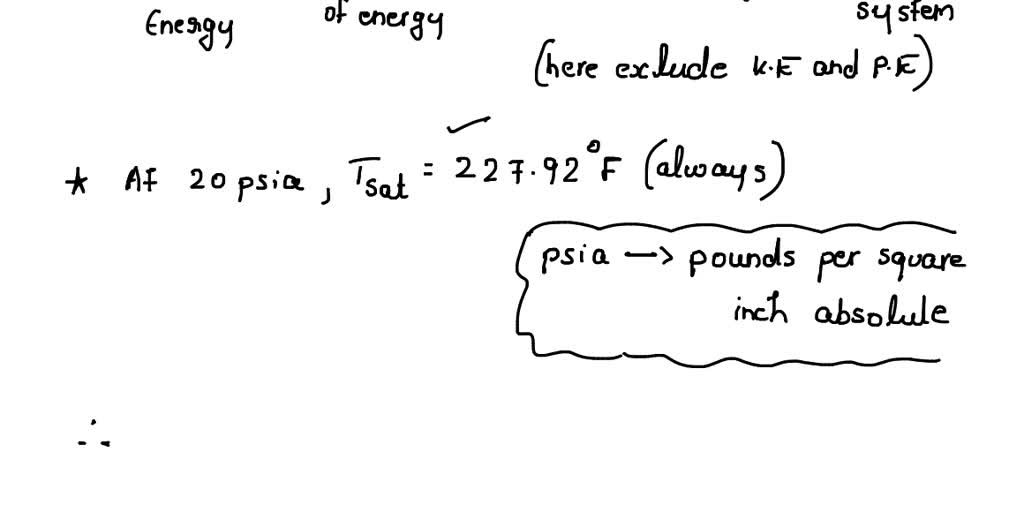 Energy of energy system
(here exclude K.E and P.E)
* At 20 psia, Tsat = 227.92°F (always)
psia → pounds per square
inch absolute
∴